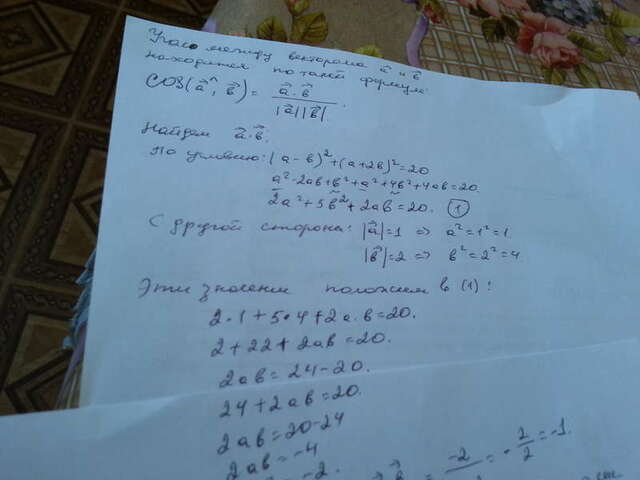 Угол между векторами a⃗ и b⃗
находится по такой формуле:
cos(a⃗^, b⃗) = a⃗·b⃗ / |a⃗||b⃗|.
Найдем a⃗·b⃗.
По условию: (a-b)²+(a+2b)²=20
a²-2ab+b²+a²+4b²+4ab=20.
2a²+5b²+2ab=20. (1)
С другой стороны: |a⃗|=1 => a²=1²=1
|b⃗|=2 => b²=2²=4.
Эти значения положим в (1):
2·1+5·4+2a·b=20.
2+22+2ab=20.
2ab=24-20.
24+2ab=20.
2ab=20-24
2ab=-4
-2. = -2 = -2/2=-1.